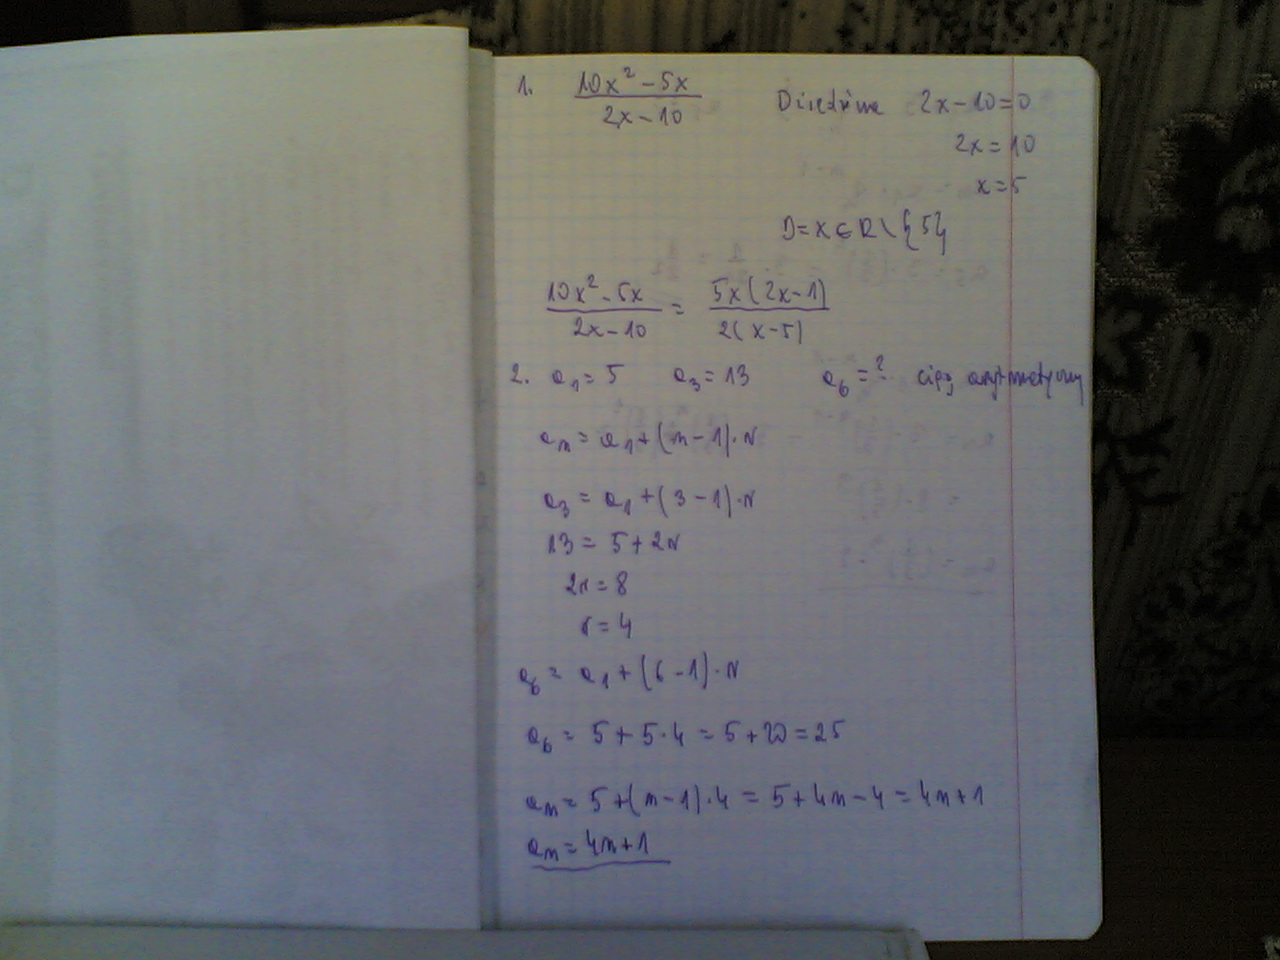 1. \frac{10x^2-5x}{2x-10} Dziedzina 2x-10=0
2x=10
x=5
D=x∈R\{5}
\frac{10x^2-5x}{2x-10} = \frac{5x(2x-1)}{2(x-5)}
2. a_1=5 a_3=13 a_6=? ciąg arytmetyczny
a_n=a_1+(n-1)·r
a_3=a_1+(3-1)·r
13=5+2r
2r=8
r=4
a_6=a_1+(6-1)·r
a_6=5+5·4=5+20=25
a_n=5+(n-1)·4=5+4n-4=4n+1
a_n=4n+1